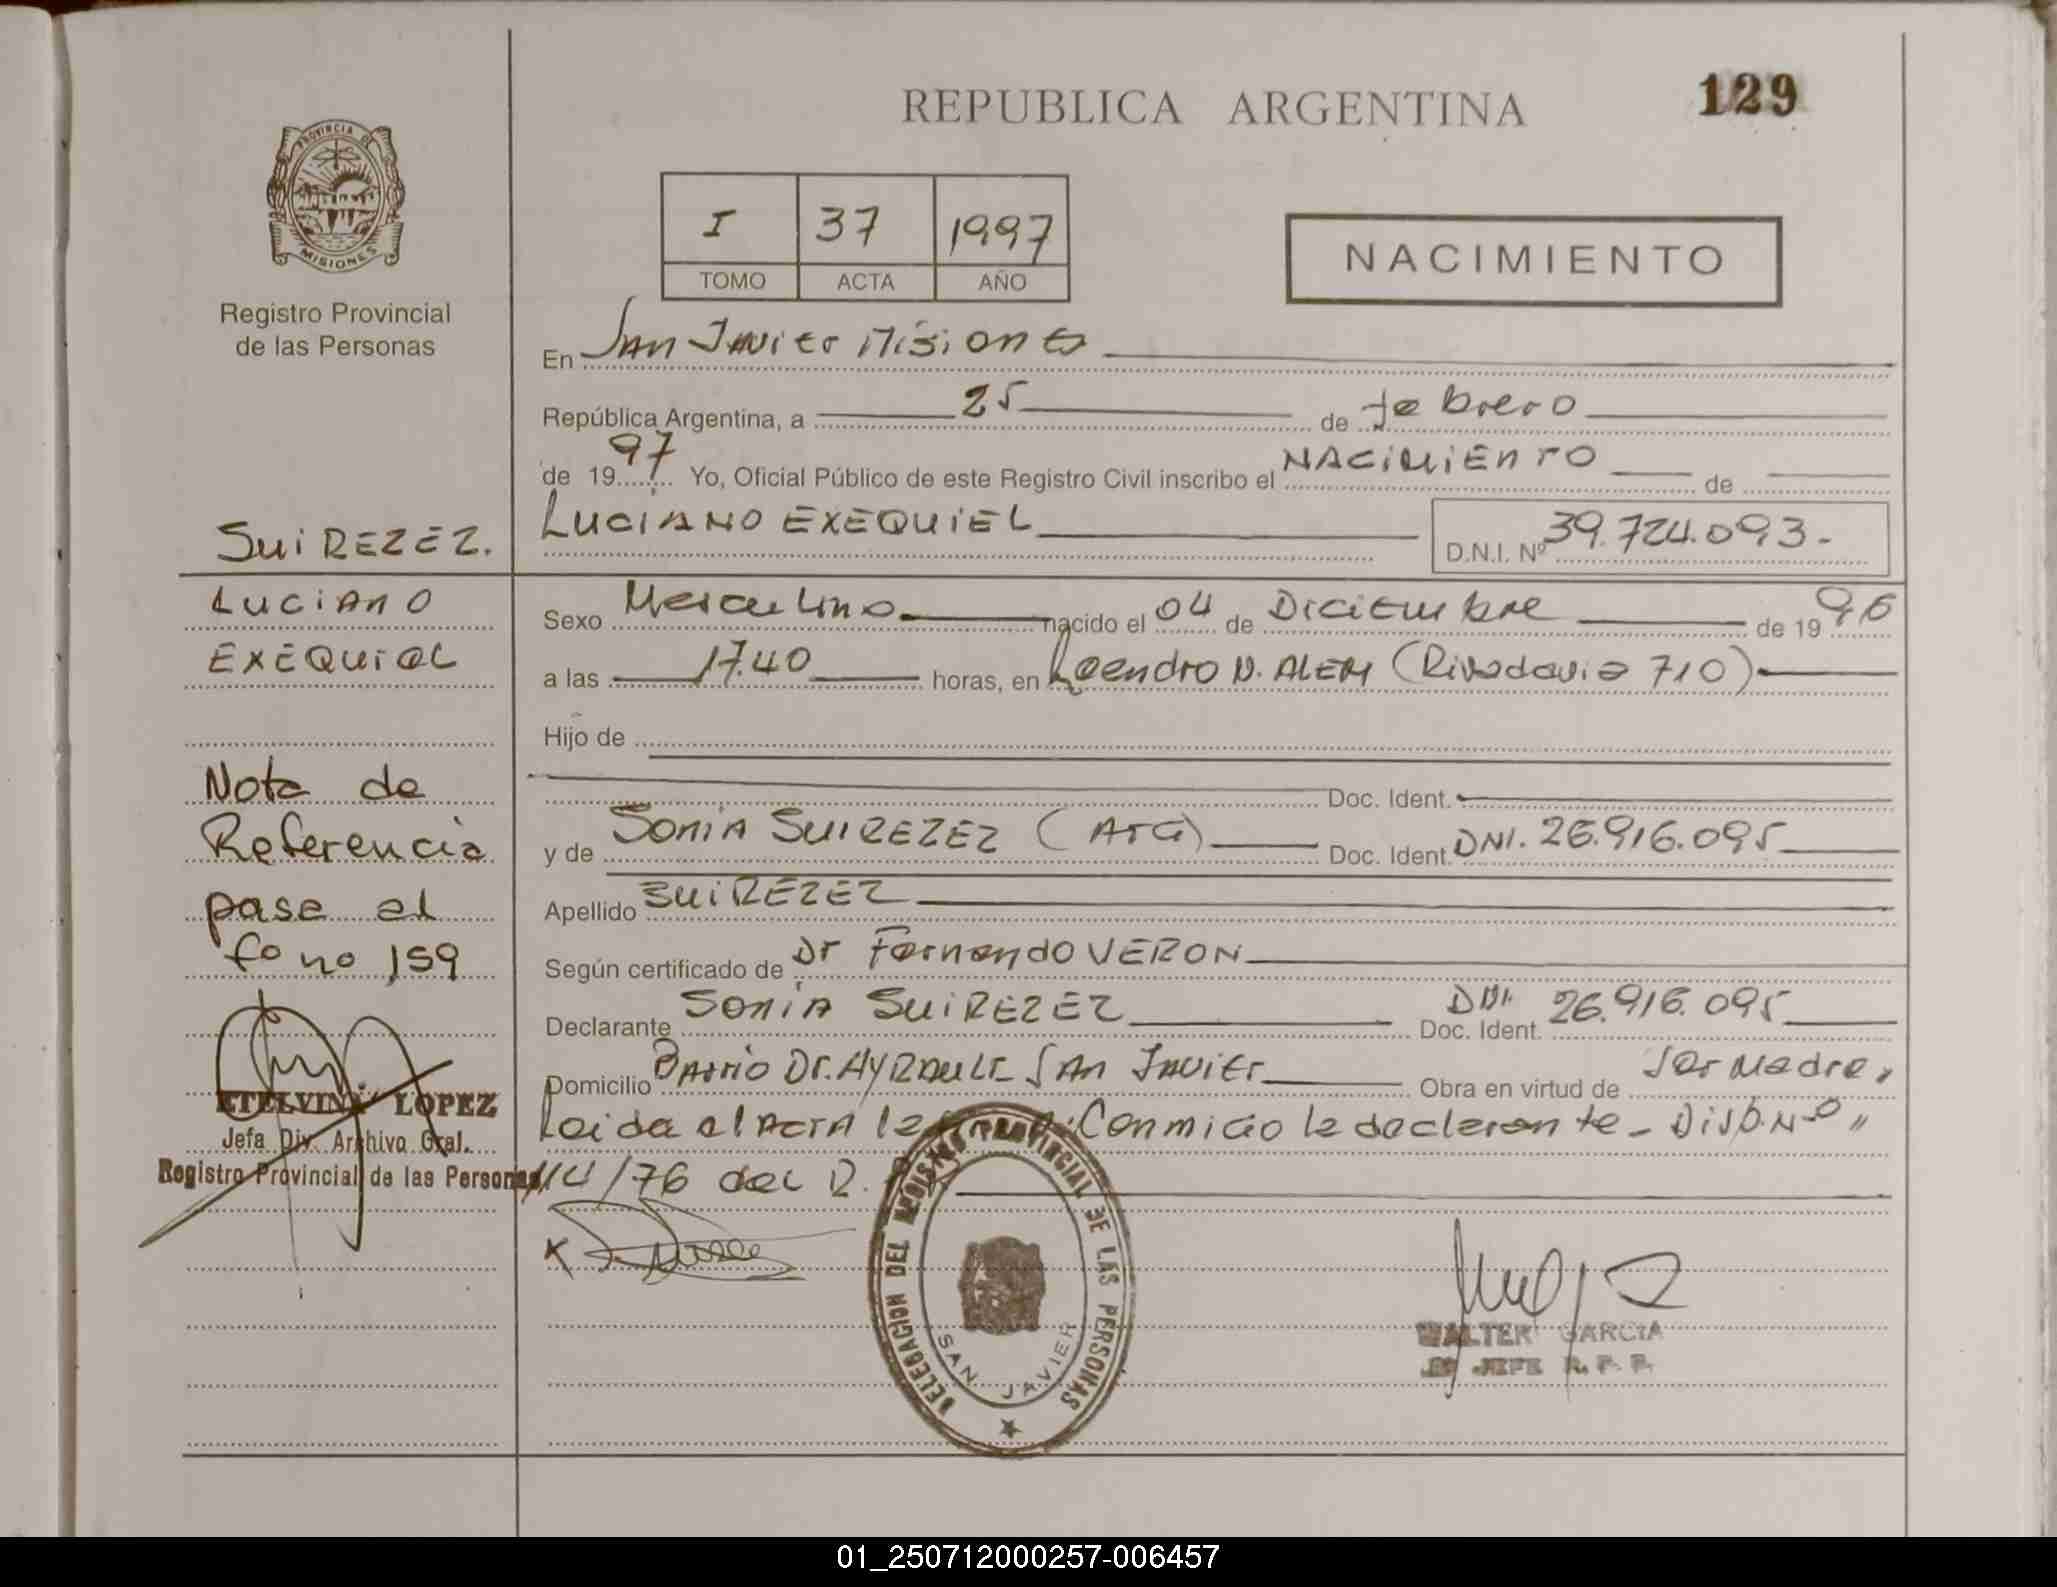 129
REPUBLICA ARGENTINA
PROVINCIA DE
MISIONES
Registro Provincial
de las Personas
I 37 1997
TOMO ACTA AÑO
NACIMIENTO
En San Javier Misiones
República Argentina, a 25 de febrero
de 1997 Yo, Oficial Público de este Registro Civil inscribo el NACIMIENTO de
LUCIANO EXEQUIEL D.N.I. Nº 39.724.093.-
Sexo Masculino nacido el 04 de Diciembre de 1996
a las 17.40 horas, en Leandro N. ALEM (Rivadavia 710)
Hijo de
Doc. Ident.
y de SONIA SUIREZEZ (ARG) Doc. Ident. DNI. 26.916.095
Apellido SUIREZEZ
Según certificado de Dr Fernando VERON
Declarante SONIA SUIREZEZ Doc. Ident. DNI. 26.916.095
Domicilio Barrio Dr. AYRAULT San Javier Obra en virtud de Ser Madre,
Leida el ACTA la Conmigo la declarante - Disp. Nº "
114/76 del R.
SUIREZEZ.
LUCIANO
EXEQUIEL
Nota de
Referencia
pasa al
fo no 159
ETELVINA LOPEZ
Jefa Div. Archivo Gral.
Registro Provincial de las Personas
DELEGACION DEL REGISTRO PROVINCIAL DE LAS PERSONAS
SAN JAVIER
WALTER GARCIA
JEFE R. P. P.
01_250712000257-006457